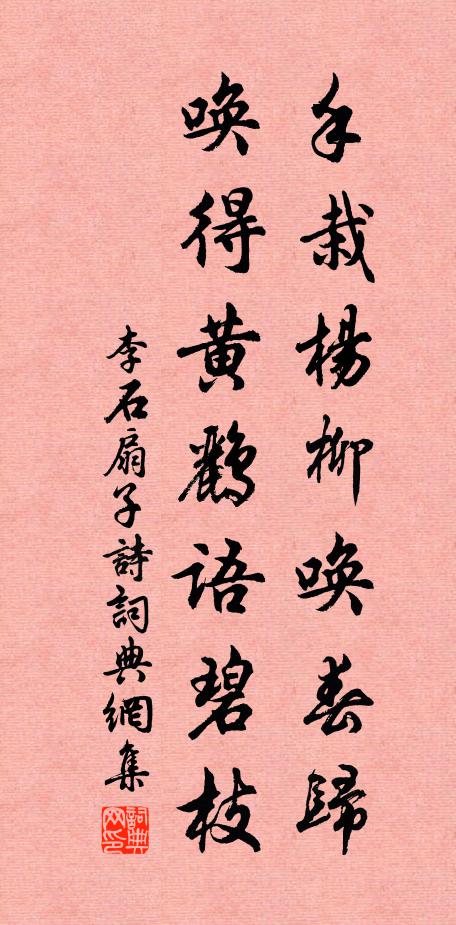 手栽楊柳喚春歸
喚得黃鸝語碧枝
李石扇子詩詞典網集
詞典网印